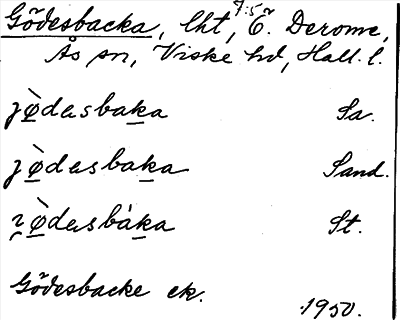 Gödesbacka, lht, 7:5 Ö. Derome,
Ås sn, Viske hd, Hall. l.
jø̀dasbaka Sa.
jø̀dasbaka Sand.
ø̀dasbàka St.
Gödesbacke ek.
1950.